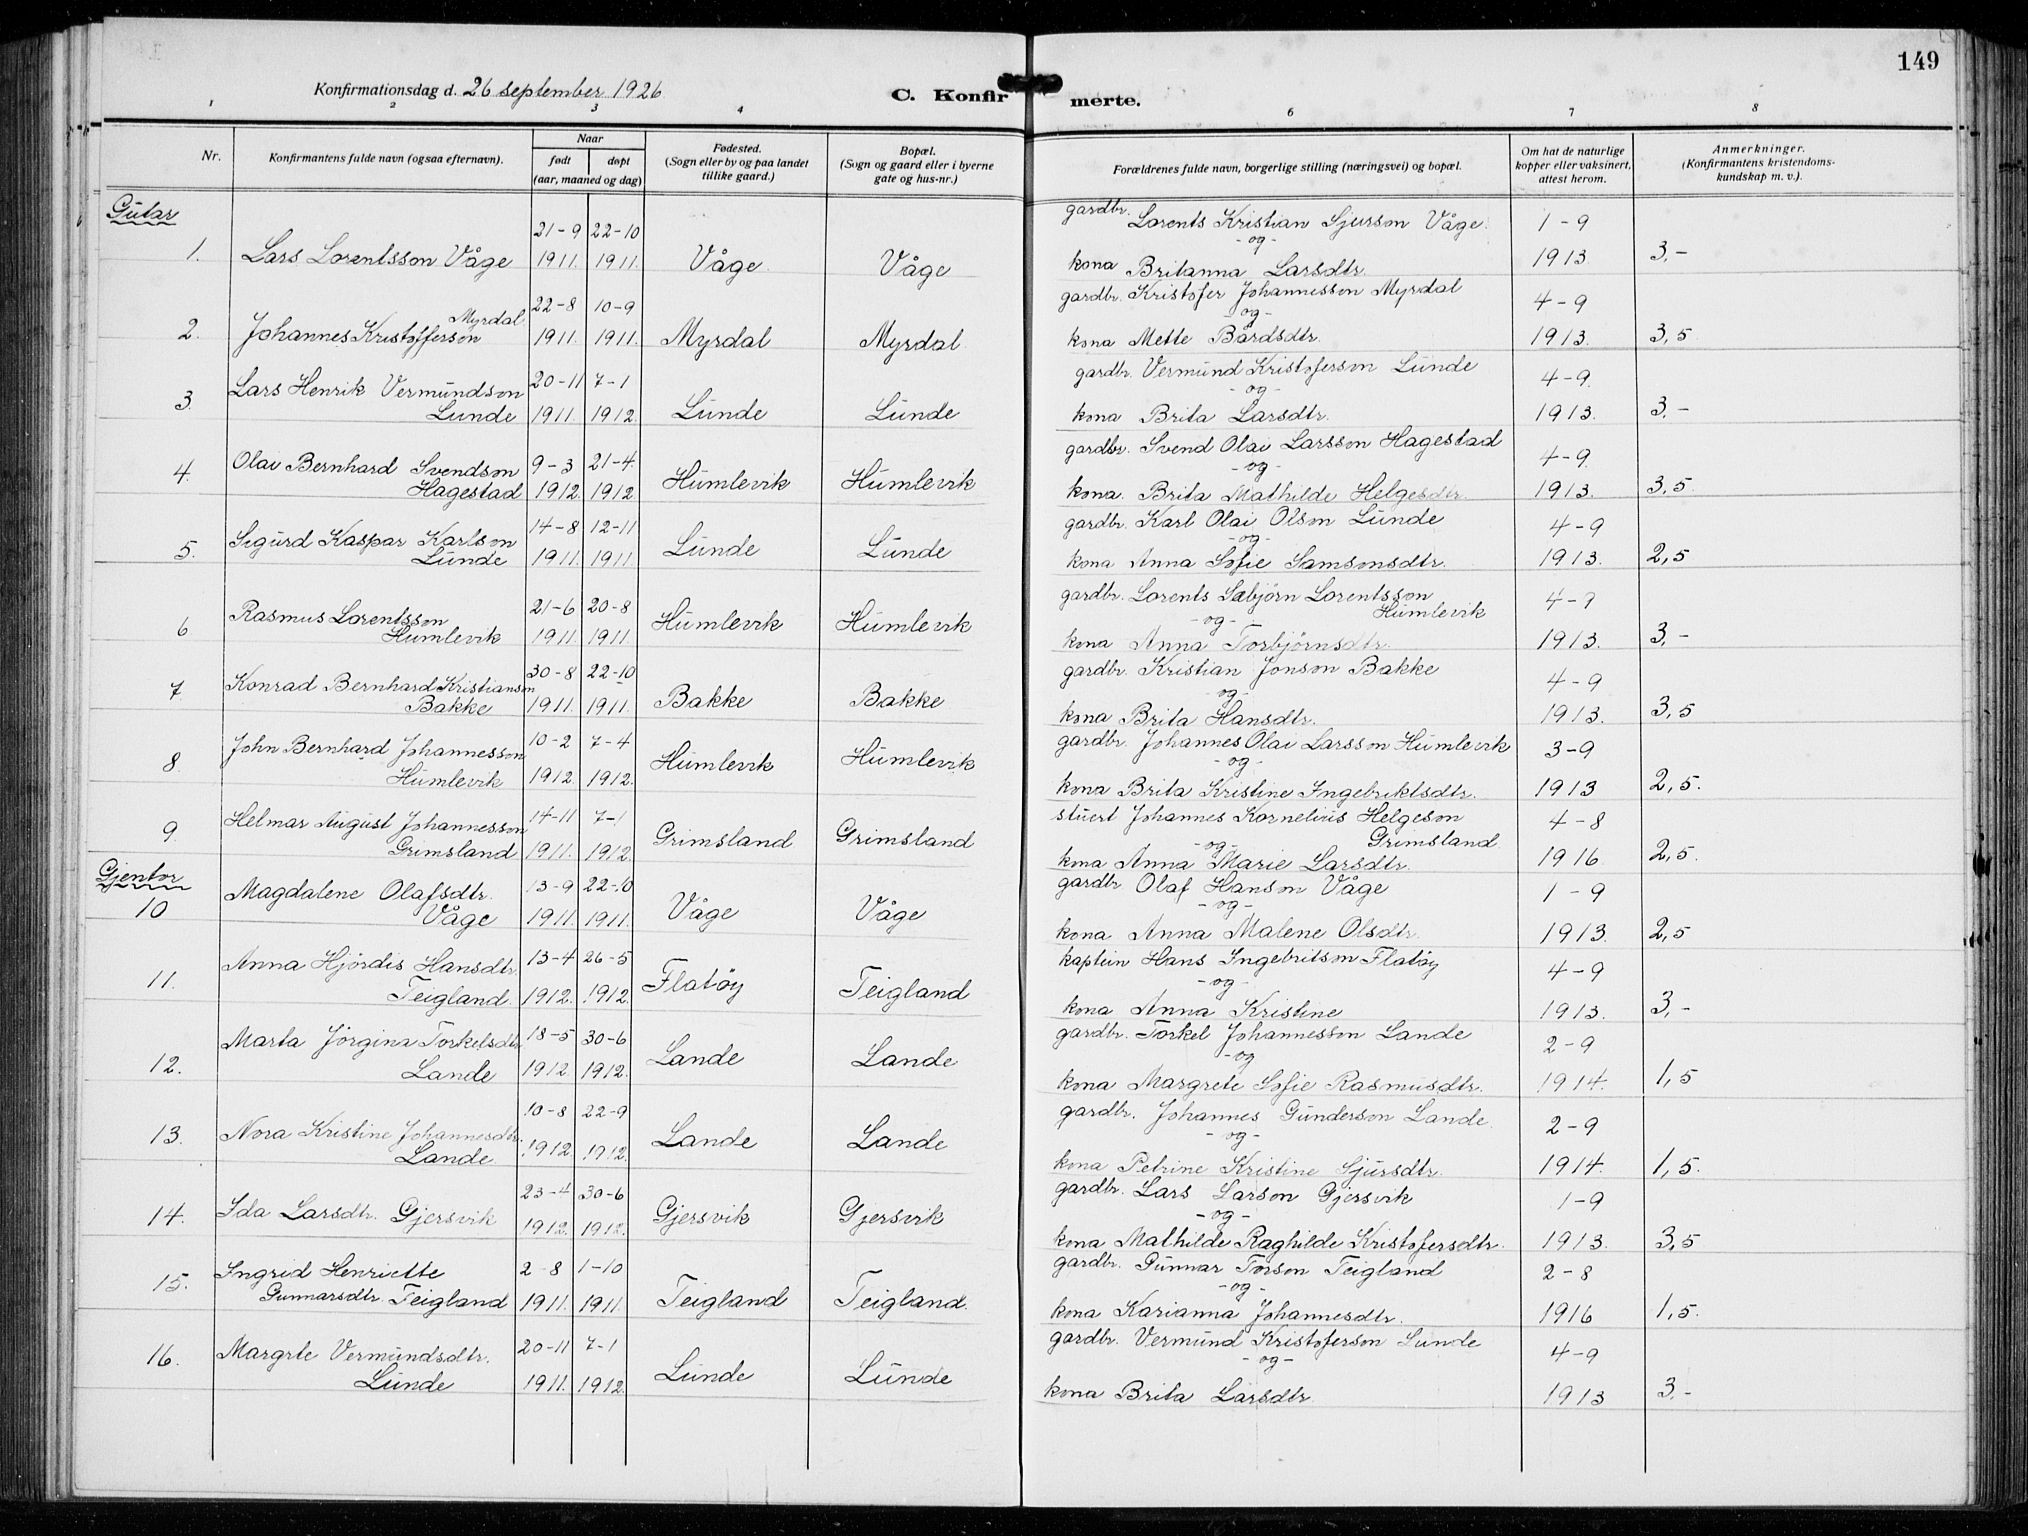 149
Konfirmationsdag d. 26 september 1926
C. Konfirmerte.
1 2 3 4 6 7 8
Nr.
Konfirmantens fulde navn (ogsaa efternavn).
Naar
født
døpt
(aar, maaned og dag)
Fødested.
(Sogn eller by og paa landet
tillike gaard.)
Bopæl.
(Sogn og gaard eller i byerne
gate og hus-nr.)
Forældrenes fulde navn, borgerlige stilling (næringsvei) og bopæl.
Om hat de naturlige
kopper eller vaksinert,
attest herom.
Anmerkninger.
(Konfirmantens kristendoms-
kundskap m. v.).
Gutar
21-9 22-10 gardbr. Lorents Kristian Sjurson Våge 1-9
-og-
1. Lars Lorentsson Våge 1911. 1911. Våge Våge kona Britanna Larsdtr. 1913 3,-
22-8 10-9 gardbr. Kristofer Johannesson Myrdal 4-9
Myrdal -og-
2. Johannes Kristofferson 1911. 1911. Myrdal Myrdal kona Mette Bårdsdtr. 1913. 3,5
Lars Henrik Vermundson 20-11 7-1 gardbr. Vermund Kristoferson Lunde 4-9.
-og-
3. Lunde 1911. 1912. Lunde Lunde kona Brita Larsdtr. 1913. 3,-
Olai Bernhard Svendson 9-3 21-4. gardbr. Svend Olai Larsson Hagestad 4-9.
-og-
4. Hagestad 1912. 1912 Humlevik Humlevik kona. Brita Mathilde Helgesdtr. 1913. 3,5
Sigurd Kaspar Karlson 14-8 12-11 gardbr. Karl Olai Olson Lunde 4-9
-og-
5. Lunde 1911. 1911. Lunde Lunde kona Anna Sofie Samsonsdtr. 1913. 2,5
Rasmus Lorentsson 21-6 20-8 gardbr. Lorents Sæbjörn Lorentsson 4-9
Humlevik
-og-
6 Humlevik 1911. 1911. Humlevik Humlevik kona Anna Torbjörnsdtr. 1913. 3,-
Konrad Bernhard Kristianson 30-8 22-10 gardbr. Kristian Jonson Bakke 4-9
-og-
7 Bakke 1911. 1911. Bakke Bakke kona Brita Hansdtr. 1913. 3,5
John Bernhard Johannesson 10-2 7-4 gardbr. Johannes Olai Larsson Humlevik 3-9
-og-
8. Humlevik 1912 1912. Humlevik Humlevik kona Brita Kristine Ingebriktsdtr. 1913 2,5.
Helmar August Johannesson 14-11 7-1 stuert Johannes Kornelius Helgeson 4-8
Grimsland
-og-
9. Grimsland 1911. 1912. Grimsland Grimsland kona Anna Marie Larsdtr. 1916 2,5.
Gjentor
Magdalene Olafsdtr. 13-9 22-10 gardbr Olaf Hanson Våge 1-9
-og-
10 Våge 1911. 1911. Våge Våge kona Anna Malene Olsdtr. 1913. 2,5
Anna Hjördis Hansdtr. 13-4 26-5 kaptein Hans Ingebritson Flatöy 4-9
-og-
11. Teigland. 1912. 1912. Flatöy Teigland kona Anna Kristine 1913. 3,-
Marta Jörgina Torkelsdtr 18-5 30-6 gardbr. Torkel Johannesson Lande 2-9
-og
12. Lande 1912 1912. Lande Lande kona Margrete Sofie Rasmusdtr. 1914. 1,5
10-8 22-9 gardbr. Johannes Gunderson Lande 2-9
Nora Kristine Johannesdtr. -og-
13. Lande 1912 1912. Lande Lande kona Petrine Kristine Sjursdtr. 1914. 1,5.
23-4 30-6 gardbr. Lars Larson Gjersvik 1-9
-og-
14. Ida Larsdtr. Gjersvik 1912. 1912. Gjersvik Gjersvik kona Mathilde Raghilde Kristofersdtr. 1913. 3,5
Ingrid Henriette 2-8 1-10 gardbr. Gunnar Torson Teigland 2-8
-og-
15. Gunnarsdtr. Teigland 1911. 1911. Teigland Teigland. kona Karianna Johannesdtr. 1916 1,5.
Margrte Vermundsdtr. 20-11 7-1 gardbr. Vermund Kristoferson Lunde 4-9
-og-
16. Lunde 1911. 1912. Lunde Lunde kona Brita Larsdtr 1913 3,-